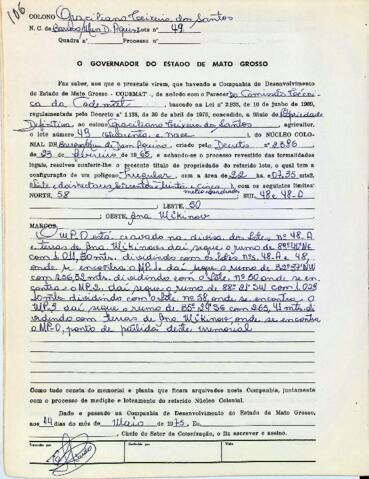 106
COLONO Graciliano Teixeira dos Santos
N. C. de Dom Aquino Lote nº 49
Quadra nº Processo nº
O GOVERNADOR DO ESTADO DE MATO GROSSO
Faz saber, aos que o presente virem, que havendo a Companhia de Desenvolvimento
do Estado de Mato Grosso - CODEMAT -, de acordo com o Parecer da Comissão Técni
ca da Codemat, baseado na Lei nº 2.935, de 10 de junho de 1969,
regulamentada pelo Decreto nº 1.138, de 30 de abril de 1970, concedido, a título de Propriedade
Definitiva ao colono Graciliano Teixeira dos Santos, agricultor,
o lote número 49 (Quarenta e nove), do NÚCLEO COLO-
NIAL DE Dom Aquino, criado pelo Decreto nº 2.286
de 23 de fevereiro de 1965, e achando-se o processo revestido das formalidades
legais, resolveu conferir-lhe o presente título de propriedade do referido lote, o qual tem a
configuração de um polígono Irregular, com a área de 22 ha 0735 mts2,
com os seguintes limites:
NORTE, 58 SUL, 48 e 48-A
LESTE, 50
OESTE, Ana Mikinov
MARCOS: O MP.0 está cravado na divisa dos lotes nº 48. A
e terras de Ana daí segue o rumo de NE
com dividindo com os lotes nºs. 48. A e 48,
onde se encontra o MP.1 daí segue o rumo de NW
com mts. dividindo com o lote nº 50 onde se en-
contra o MP.2, daí segue o rumo de SW com 1.025
mts dividindo com o lote nº 58, onde se encontra o
MP.3 daí segue o rumo de com mts. di-
vidindo com terras de Ana Mikinov, onde se encontra
o MP-0, ponto de partida deste memorial
Como tudo consta do memorial e planta que ficam arquivados nesta Companhia, juntamente
com o processo de medição e loteamento do referido Núcleo Colonial.
Dado e passado na Companhia de Desenvolvimento do Estado de Mato Grosso,
aos 14 dias do mês de Maio de 1975. Eu,
, Chefe do Setor de Colonização, o fiz escrever e assino.
Conferido por
Visto